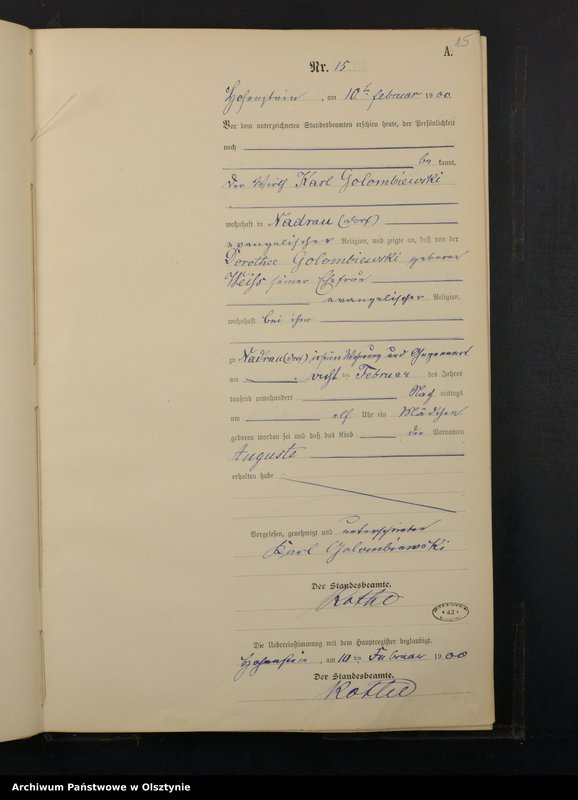 15
A.
Nr. 15
Hohenstein, am 10ten Februar 1900.
Vor dem unterzeichneten Standesbeamten erschien heute, der Persönlichkeit
nach
be kannt,
der Wirth Karl Golombiewski
wohnhaft in Nadrau (Dorf)
evangelischer Religion, und zeigte an, daß von der
Dorothee Golombiewski geborene
Weiss seiner Ehefrau
evangelischer Religion,
wohnhaft bei ihm
zu Nadrau (Dorf), in seiner Wohnung und Gegenwart
am acht ten Februar des Jahres
tausend neunhundert Nach mittags
um elf Uhr ein Mädchen
geboren worden sei und daß das Kind den Vornamen
Auguste
erhalten habe
Vorgelesen, genehmigt und unterschrieben
Karl Golombiewski
Der Standesbeamte.
Kothe
Die Uebereinstimmung mit dem Hauptregister beglaubigt.
Hohenstein, am 10 ten Februar 1900
Der Standesbeamte.
Kothe
Archiwum Państwowe w Olsztynie